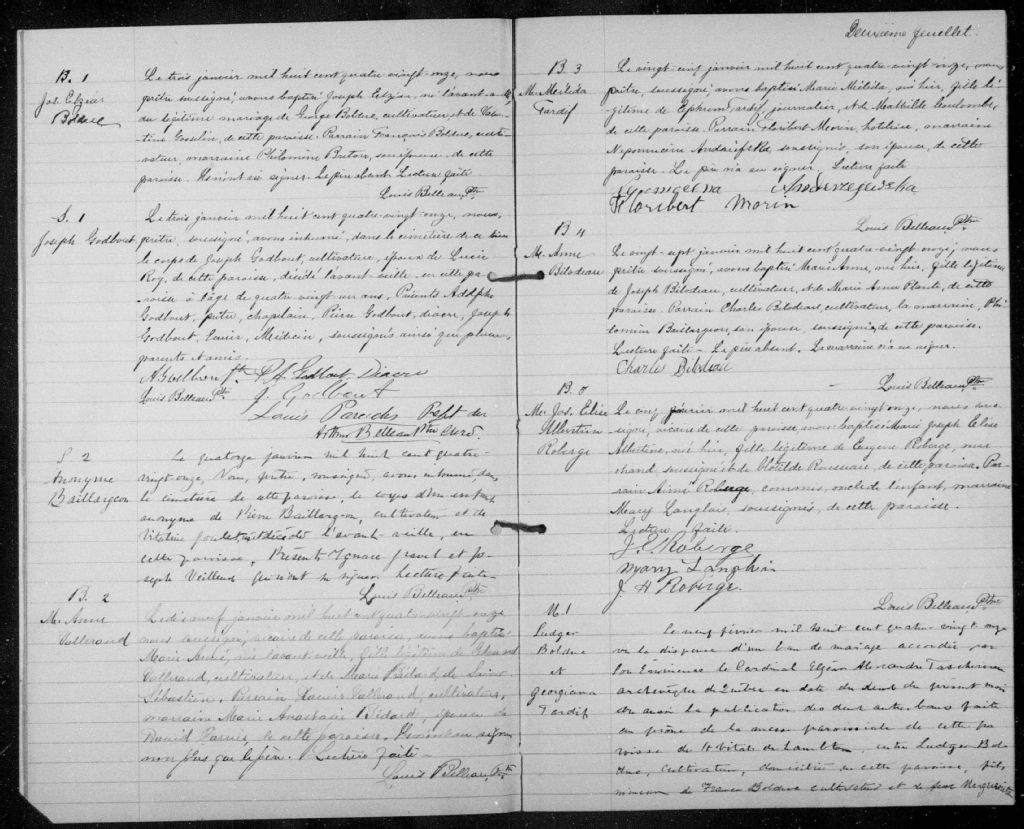 B. 1
Jos. Elzéar
Bolduc
Le trois janvier mil huit cent quatre-vingt-onze, nous
prêtre soussigné, avons baptisé Joseph Elzéar, né l'avant-veille,
du légitime mariage de George Bolduc, cultivateur, et de
Gosselin, de cette paroisse. Parrain François Bolduc, culti-
vateur, marraine Philomène Breton, son épouse, de cette
paroisse. Ils n'ont su signer. Le père absent. Lecture faite
Louis Belleau, Ptre
S. 1
Joseph Godbout
Le trois janvier mil huit cent quatre-vingt-onze, nous,
prêtre, soussigné, avons inhumé, dans le cimetière de ce lieu
le corps de Joseph Godbout, cultivateur, époux de Lucie
Roy, de cette paroisse, décédé l'avant-veille, en cette pa-
roisse à l'âge de quatre-vingt un ans. Présents Adolphe
Godbout, prêtre, chapelain, Pierre Godbout, diacre, Joseph
Godbout, Médecin, soussignés ainsi que plusieurs
parents & amis.
Ptre P. A. Godbout Diacre
Louis Belleau Ptre J. Godbout
Louis Paradis
Arthur Belleau Ptre Curé.
S 2
Anonyme
Baillargeon
Le quatorze janvier mil huit cent quatre-
vingt-onze, Nous, prêtre, soussigné, avons inhumé dans
le cimetière de cette paroisse, le corps d'un enfant
anonyme de Pierre Baillargeon, cultivateur et de
Vitaline Poulet, décédé l'avant-veille, en
cette paroisse, Présents Ignace et Jo-
seph Veilleux qui n'ont su signer. Lecture faite
Louis Belleau, Ptre
B. 2
M. Anne
Vallerand
Le dix-neuf janvier mil huit cent quatre-vingt-onze
nous soussigné, vicaire de cette paroisse, avons baptisé
Marie Anne, née l'avant-veille, fille légitime de
Vallerand, cultivateur, et de Marie Bédard, de Saint
Sébastien. Parrain Vallerand, cultivateur,
marraine Marie Anastasie Bédard, épouse de
David de cette paroisse. signer
non plus que le père. Lecture faite -
Louis Belleau, Ptre
Deuxième feuillet.
B. 3
M. Mélida
Tardif
Le vingt-cinq janvier mil huit cent quatre-vingt-onze, nous
prêtre, soussigné, avons baptisé Marie Mélida, née hier, fille lé-
gitime de Ephrem Tardif, journalier, et de Mathilde
de cette paroisse. Parrain Floribert Morin, hôtelier, marraine
Népomucène soussignés, son épouse, de cette
paroisse. Le père n'a su signer. Lecture faite
Floribert Morin
Louis Belleau Ptre
B 4
M. Anne
Bilodeau
Le vingt-sept janvier mil huit cent quatre-vingt-onze, nous
prêtre soussigné, avons baptisé Marie Anne, née hier, fille légitime
de Joseph Bilodeau, cultivateur, et de Marie Anne Plante, de cette
paroisse. Parrain Charles Bilodeau, cultivateur, la marraine, Phi-
lomène Bailargeon, son épouse, soussignés, de cette paroisse.
Lecture faite - Le père absent. La marraine n'a su signer.
Charles Bilodeau
Louis Belleau Ptre
B. 5
M. Jos. Elise
Albertine
Roberge
Le cinq février mil huit cent quatre-vingt-onze, nous sous-
signé, vicaire de cette paroisse, avons baptisé Marie Joseph Elise
Albertine, née hier, fille légitime de Eugène Roberge, mar-
chand, soussigné, et de Clotilde Rousseau, de cette paroisse. Par-
rain Aimé Roberge, commis, oncle de l'enfant, marraine
Mary Langlois, soussignés, de cette paroisse.
Lecture faite.
J. E. Roberge
Mary Langlois
J. H Roberge.
Louis Belleau Ptre
M. 1
Ludger
Bolduc
et
Georgiana
Tardif
Le neuf février mil huit cent quatre-vingt-onze
vu la dispense d'un ban de mariage accordée par
Son Eminence le Cardinal Elzéar Alexandre Taschereau
archevêque de Québec en date du deux du présent mois
vu aussi la publication des deux autres bans faite
au prône de la messe paroissiale de cette pa-
roisse de St Vital de Lambton, entre Ludger Bol-
duc, cultivateur, domicilié en cette paroisse, fils
mineur de Bolduc cultivateur et de feue Marguerite